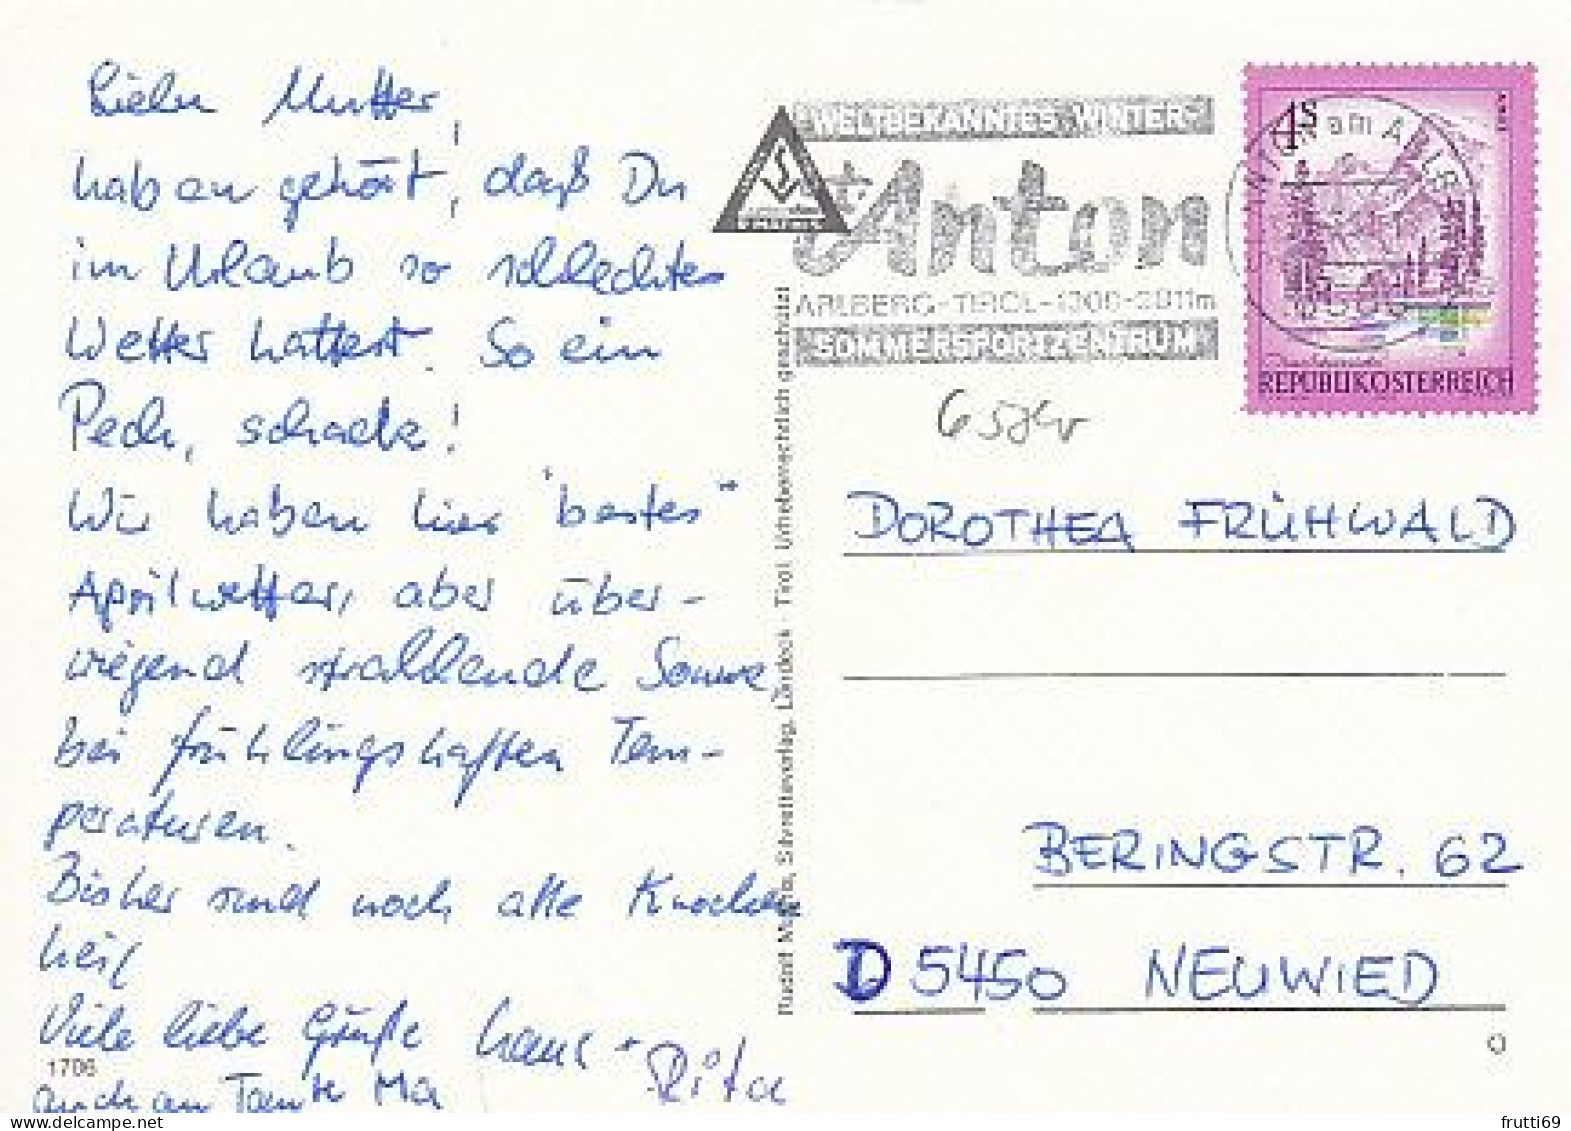 Liebe Mutter,
haben gehört, daß Du
im Urlaub so schlechtes
Wetter hattest. So ein
Pech, schade!
Wir haben hier "bestes"
Aprilwetter, aber über-
wiegend strahlende Sonne
bei frühlingshaften Tem-
peraturen.
Bisher sind noch alle Knochen
heil
Viele liebe Grüße Hans + Rita
auch an Tante Ma
1706
Tirol. Urheberrechtlich geschützt
WELTBEKANNTES WINTER-
St. Anton
ARLBERG-TIROL-1306-2811m
SOMMERSPORTZENTRUM
ANTON am ARLB
4S
REPUBLIK ÖSTERREICH
DOROTHEA FRÜHWALD
BERINGSTR. 62
D 5450 NEUWIED
frutti69